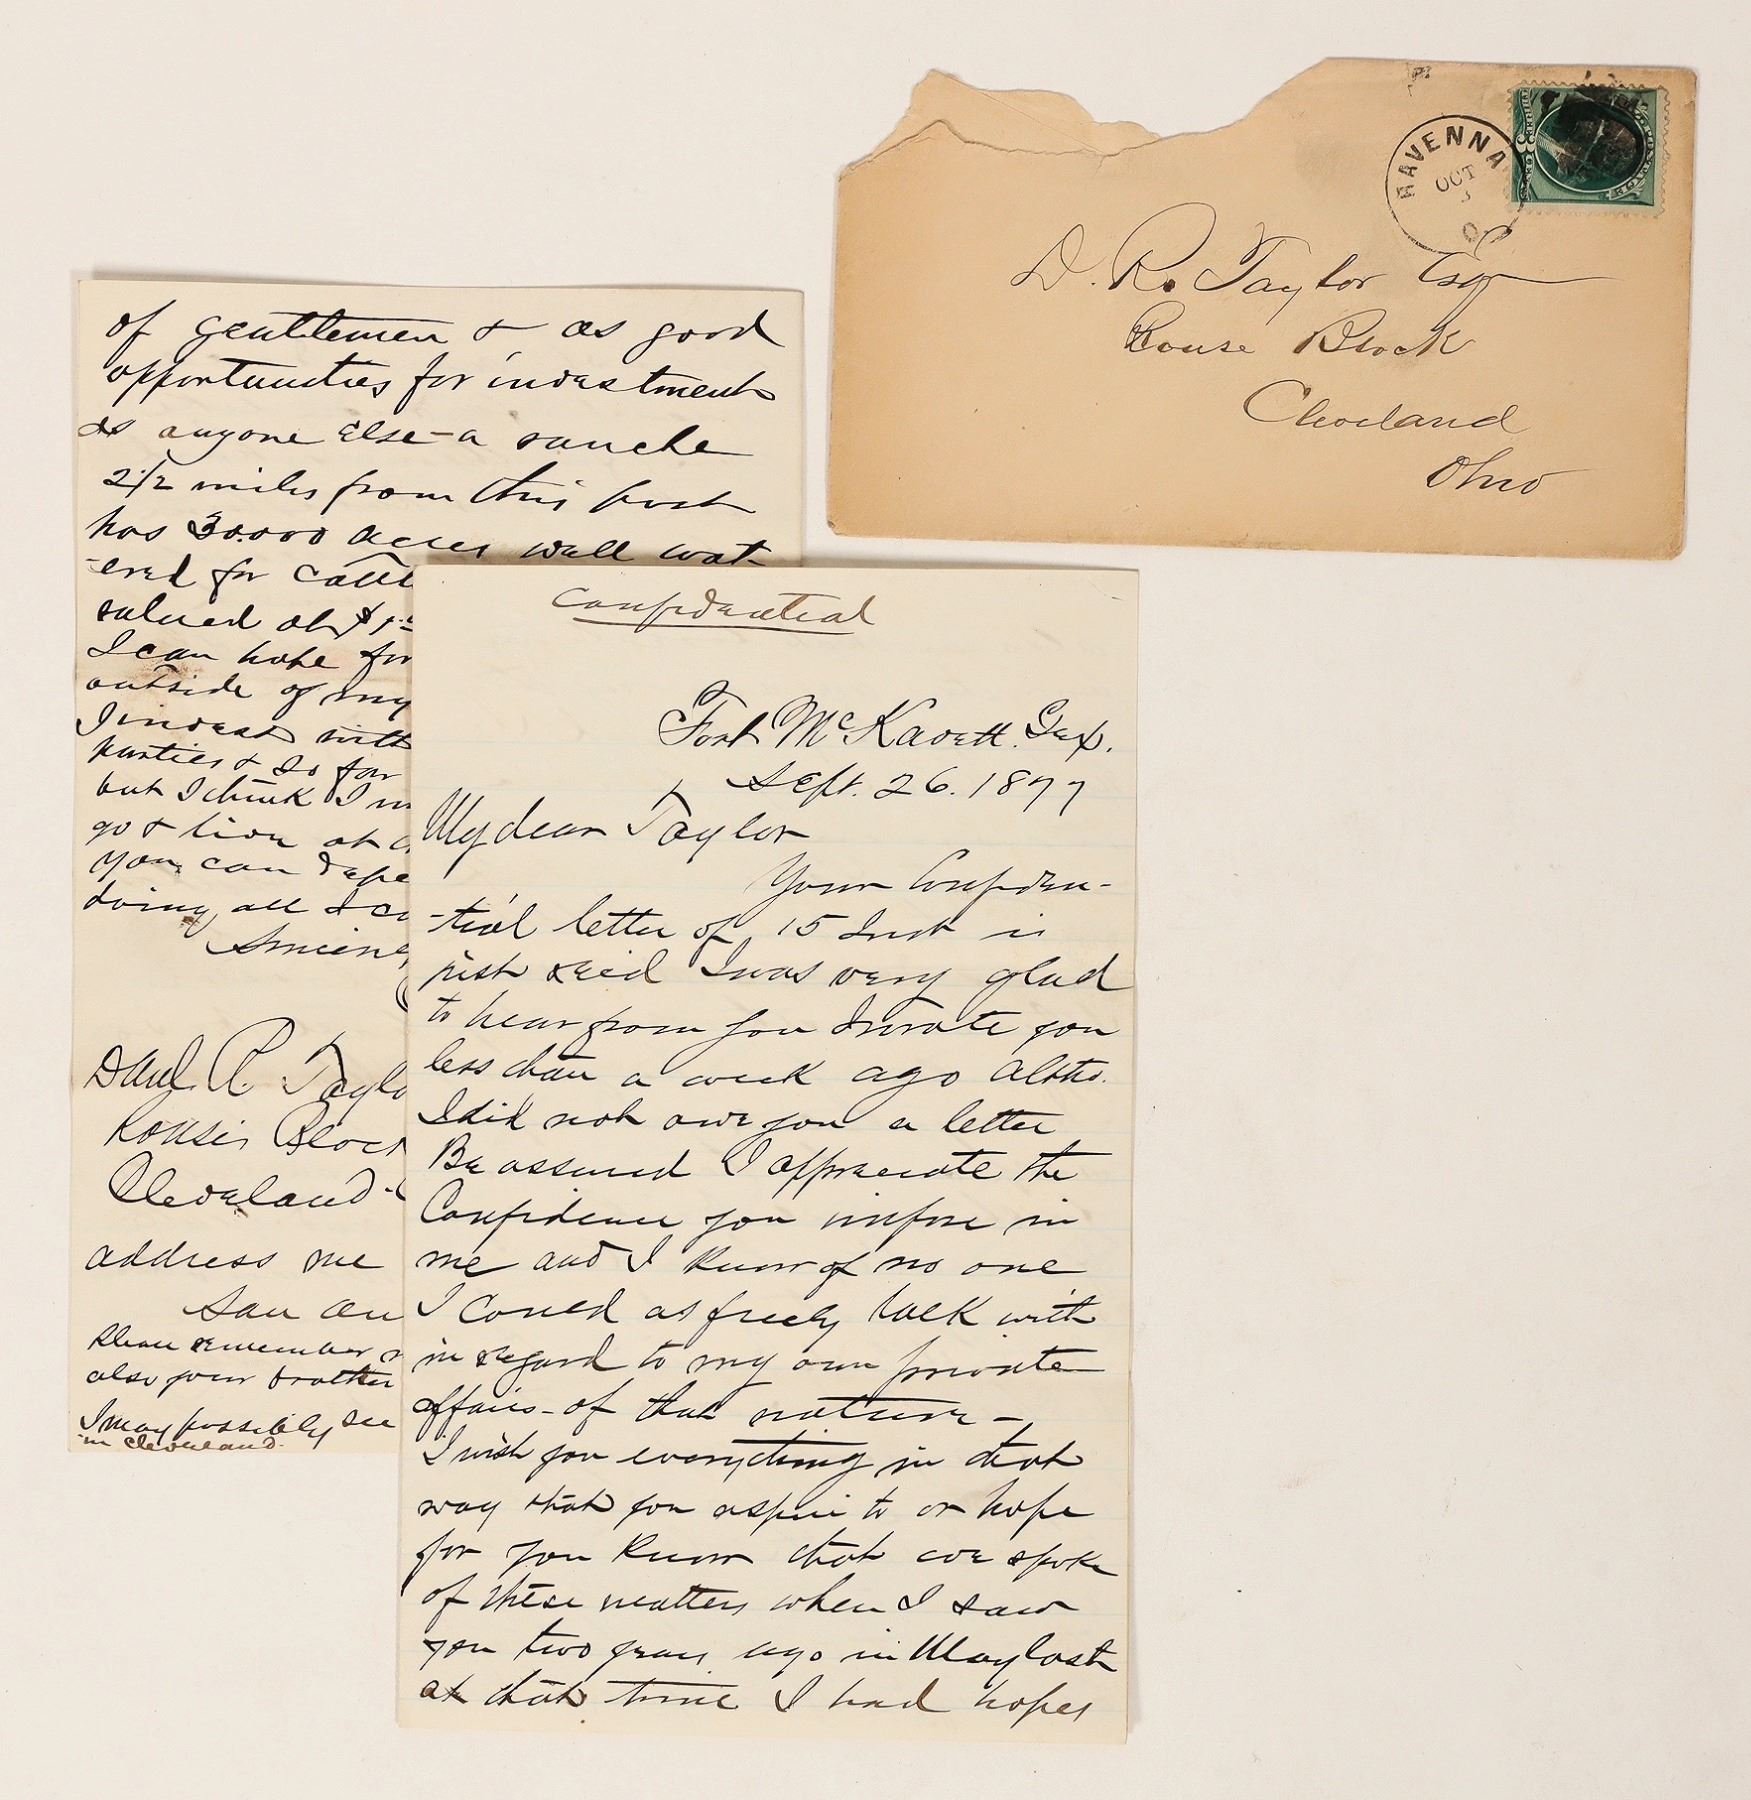 RAVENNA
OCT
O.
D. R. Taylor Esq
Rouse Block
Cleveland
Ohio
of gentlemen & as good
opportunities for investment
as anyone else - a ranche
2 1/2 miles from this post
has 30.000 acres well wat-
-ered for cattl
valued at $1.
I can hope for
outside of my
I invest with
parties & so far
but I think I m
go & live at
you can depe
doing all I c
Sincer
Danl. R. Taylo
Rouses Block
Cleveland-
address me
San An
Please remember
also your brother
I may possibly see
in Cleveland.
Confidential
Fort McKavett. Tex.
Sept. 26. 1877
My dear Taylor
Your Confiden-
-tial letter of 15 Inst is
just recd I was very glad
to hear from you I wrote you
less than a week ago altho.
I did not owe you a letter
Be assured I appreciate the
Confidence you impose in
me and I know of no one
I could as freely talk with
in regard to my own private
affairs - of that nature -
I wish you everything in that
way that you aspire to or hope
for you know that we spoke
of these matters when I saw
you two years ago in May last
at that time I had hopes